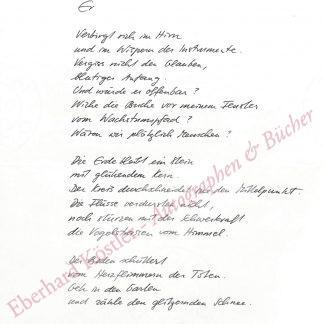 Er
Verbirgt sich im Hirn
und im Wispern der Instrumente.
Vergiss nicht den Glauben,
blutiger Anfang.
Und würde er offenbar?
Wiche die Buche vor meinem Fenster
vom Wachstumspfad?
Wären wir plötzlich Menschen?
Die Erde bleibt ein Stein
mit glühendem Kern.
Der Kreis durchschneidet den Mittelpunkt.
Die Flüsse verdursten nicht,
noch stürzen mit der Schwerkraft
die Vogelscharen vom Himmel.
Der Boden schüttert
vom Herzflimmern der Toten.
Geh in den Garten
und zähle den glitzernden Schnee.
Eberhard Köstler Autographen & Bücher